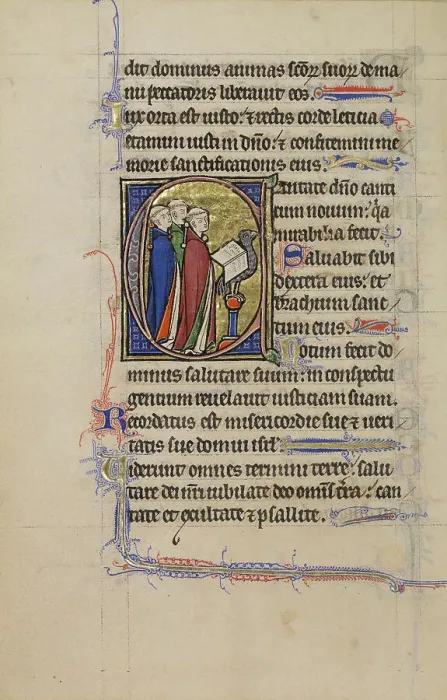 dit dominus animas scõꝝ suoꝝ de ma
nu peccatoris liberauit eos.
Lux orta est iusto: ⁊ rectis corde leticia
Letamini iusti in dño: ⁊ confitemini me
morie sanctificationis eius.
Cantate dño canti
cum nouum: q̃a
mirabilia fecit.
Saluabit sibi
dextera eius: et
brachium sanc
tum eius.
Notum fecit do
minus salutare suum: in conspectu
gentium reuelauit iusticiam suam.
Recordatus est misericordie sue ⁊ ueri
tatis sue domui isrl̃.
Viderunt omnes termini terre: salu
tare dei nr̃i iubilate deo omĩs tr̃a: can
tate et exultate ⁊ psallite.